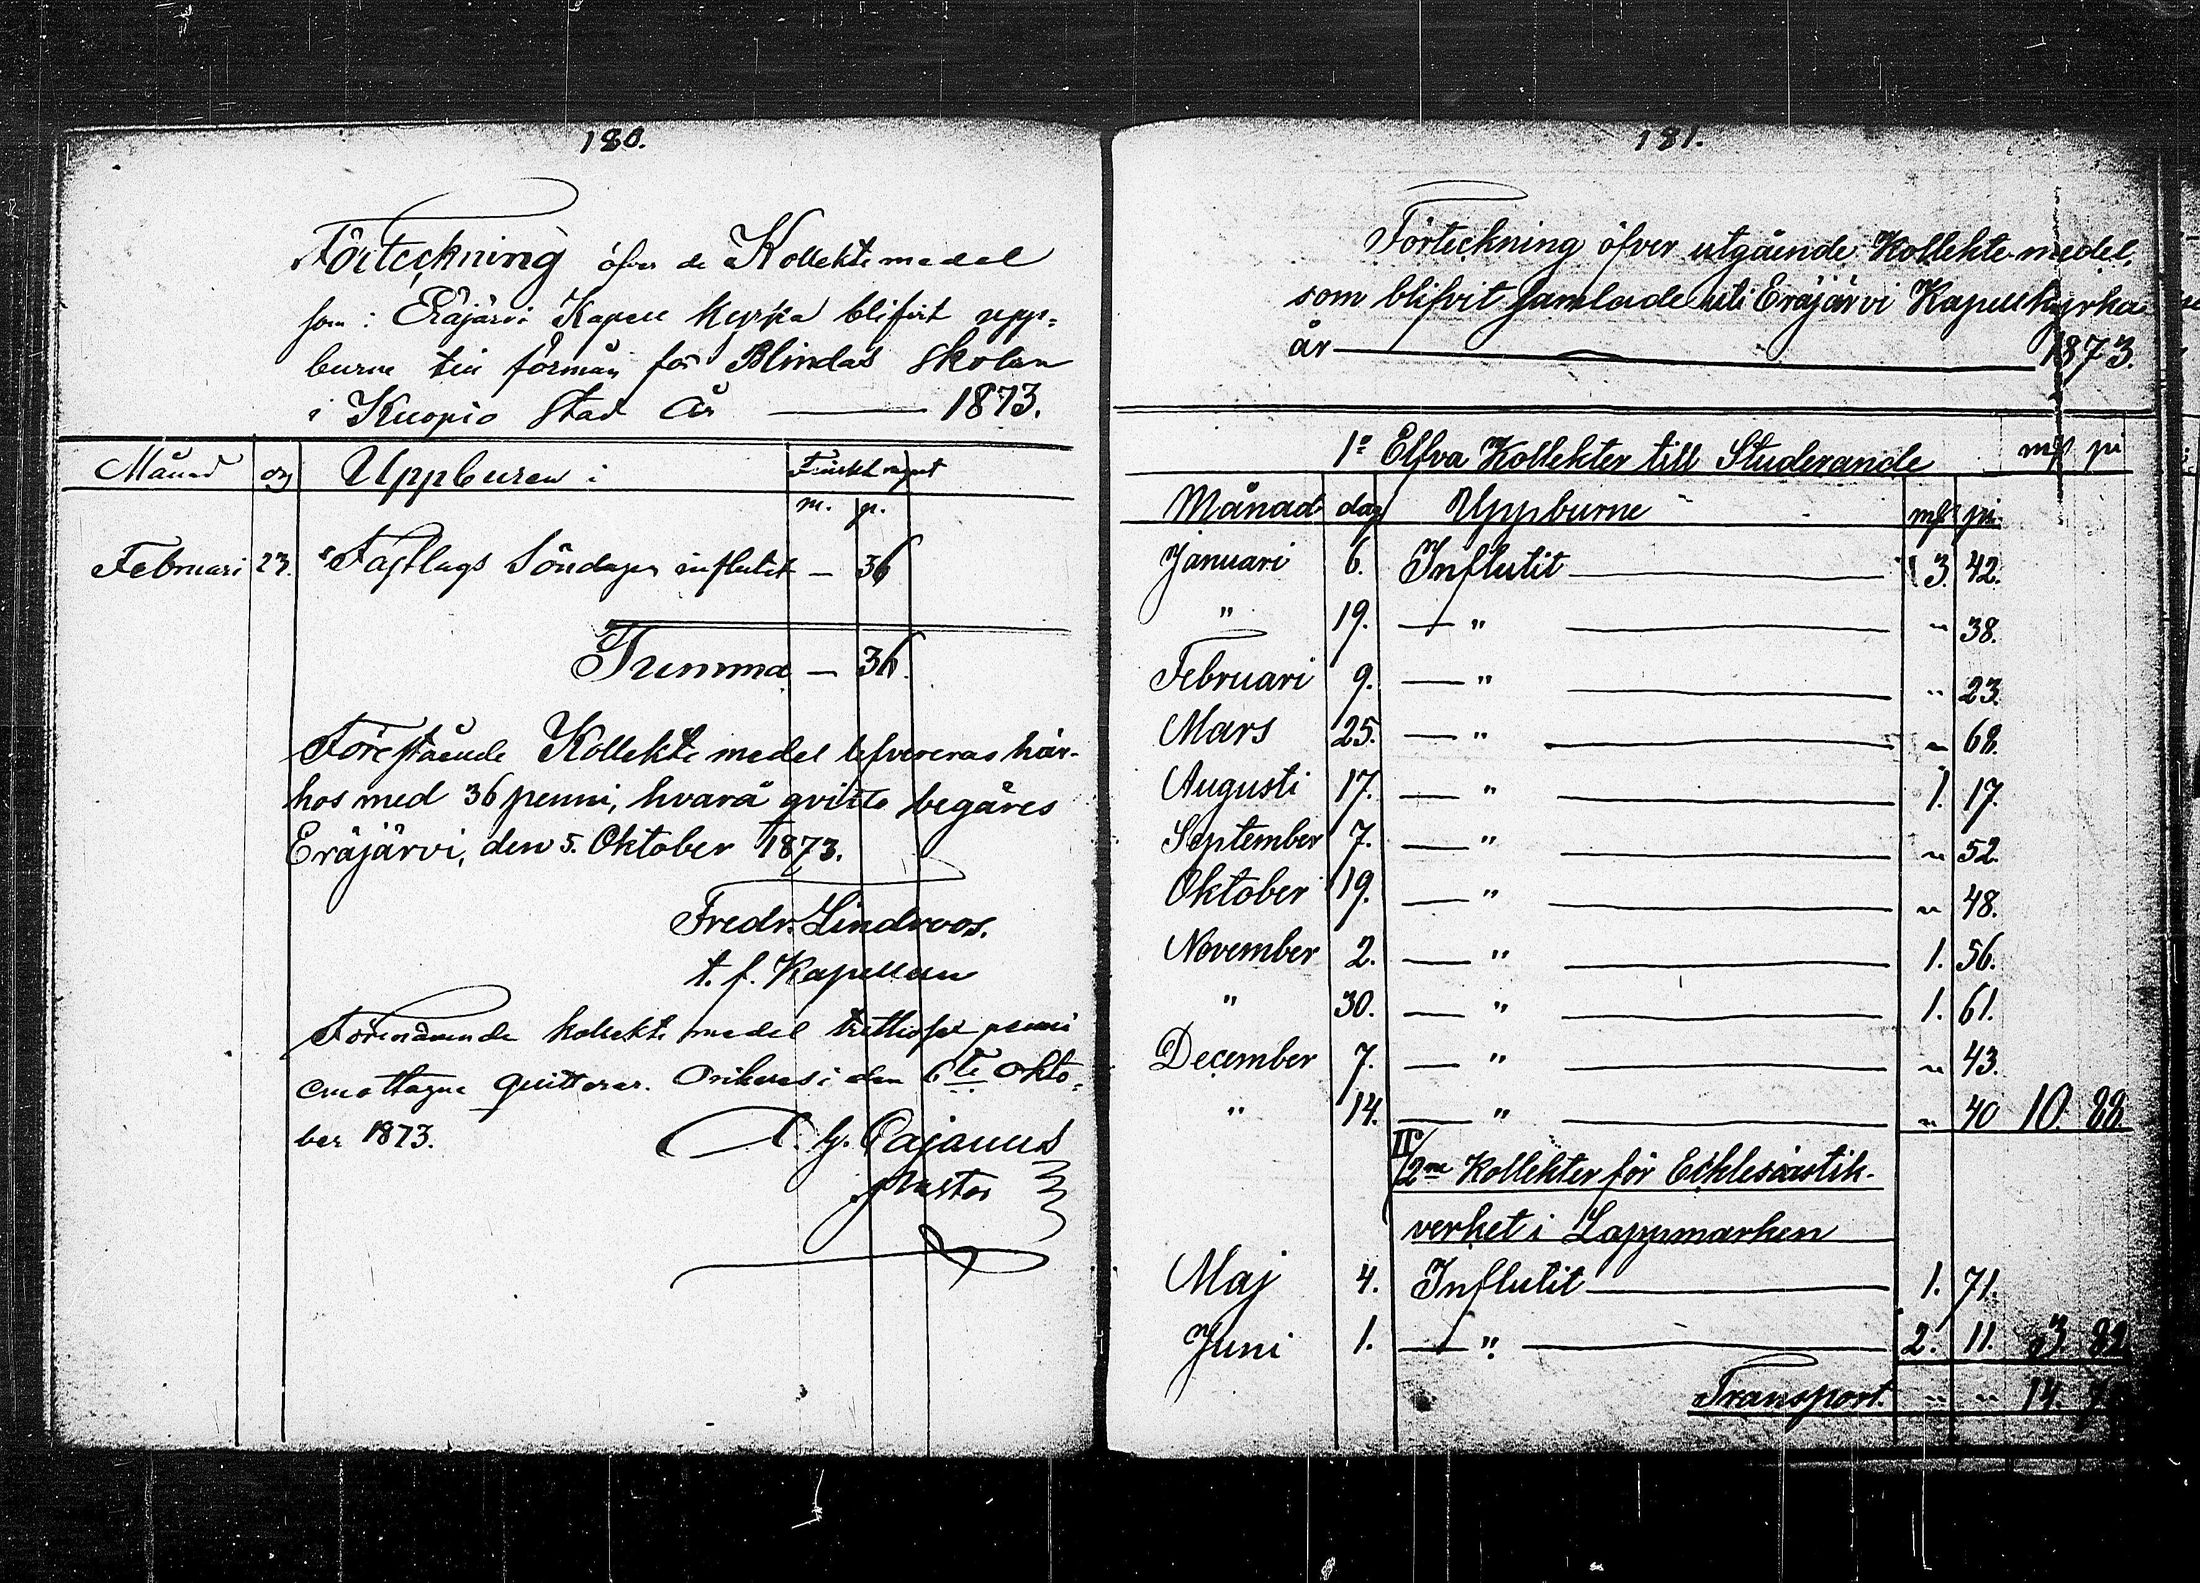 180.
Förteckning öfver de Kollektmedel
som i Eräjärvi Kapell kyrka blifvit upp-
burne till förmån för Blindas Skolan
i Kuopio Stad År — 1873.
Månad dag Uppburen i Finskt mynt
m. p.
Februari 23. Fastlags Söndagen influtit — 36
Summa — 36.
Förestående Kollekte medel lefvereras här-
hos med 36 penni, hvarå qvitto begäres
Eräjärvi, den 5. Oktober 1873.
Fredr. Lindroos.
t. f. Kapellan
Förenämnde kollekt medel trettiosex penni
emottagne quitteras. Orihvesi den 6te Okto-
ber 1873.
G. Cajanus
Pastor
181.
Förteckning öfver utgående Kollekte-medel,
som blifvit samlade uti Eräjärvi Kapellkyrka
år — 1873.
1o Elfva Kollekter till Studerande mk pi
Månad dag Uppburne mk pi
Januari 6. Influtit — 3. 42.
" 19. — " — " 38.
Februari 9. — " — " 23.
Mars 25. — " — " 68.
Augusti 17. — " — 1. 17.
September 7. — " — " 52.
Oktober 19. — " — " 48.
November 2. — " — 1. 56.
" 30. — " — 1. 61.
December 7. — " — " 43.
" 14. — " — " 40 10. 88.
II 2ne Kollekter för Ecklesiastik-
verket i Lappmarken
Maj 4. Influtit — 1. 71.
Juni 1. — " — 2. 11. 3. 82
Transport. " " 14.